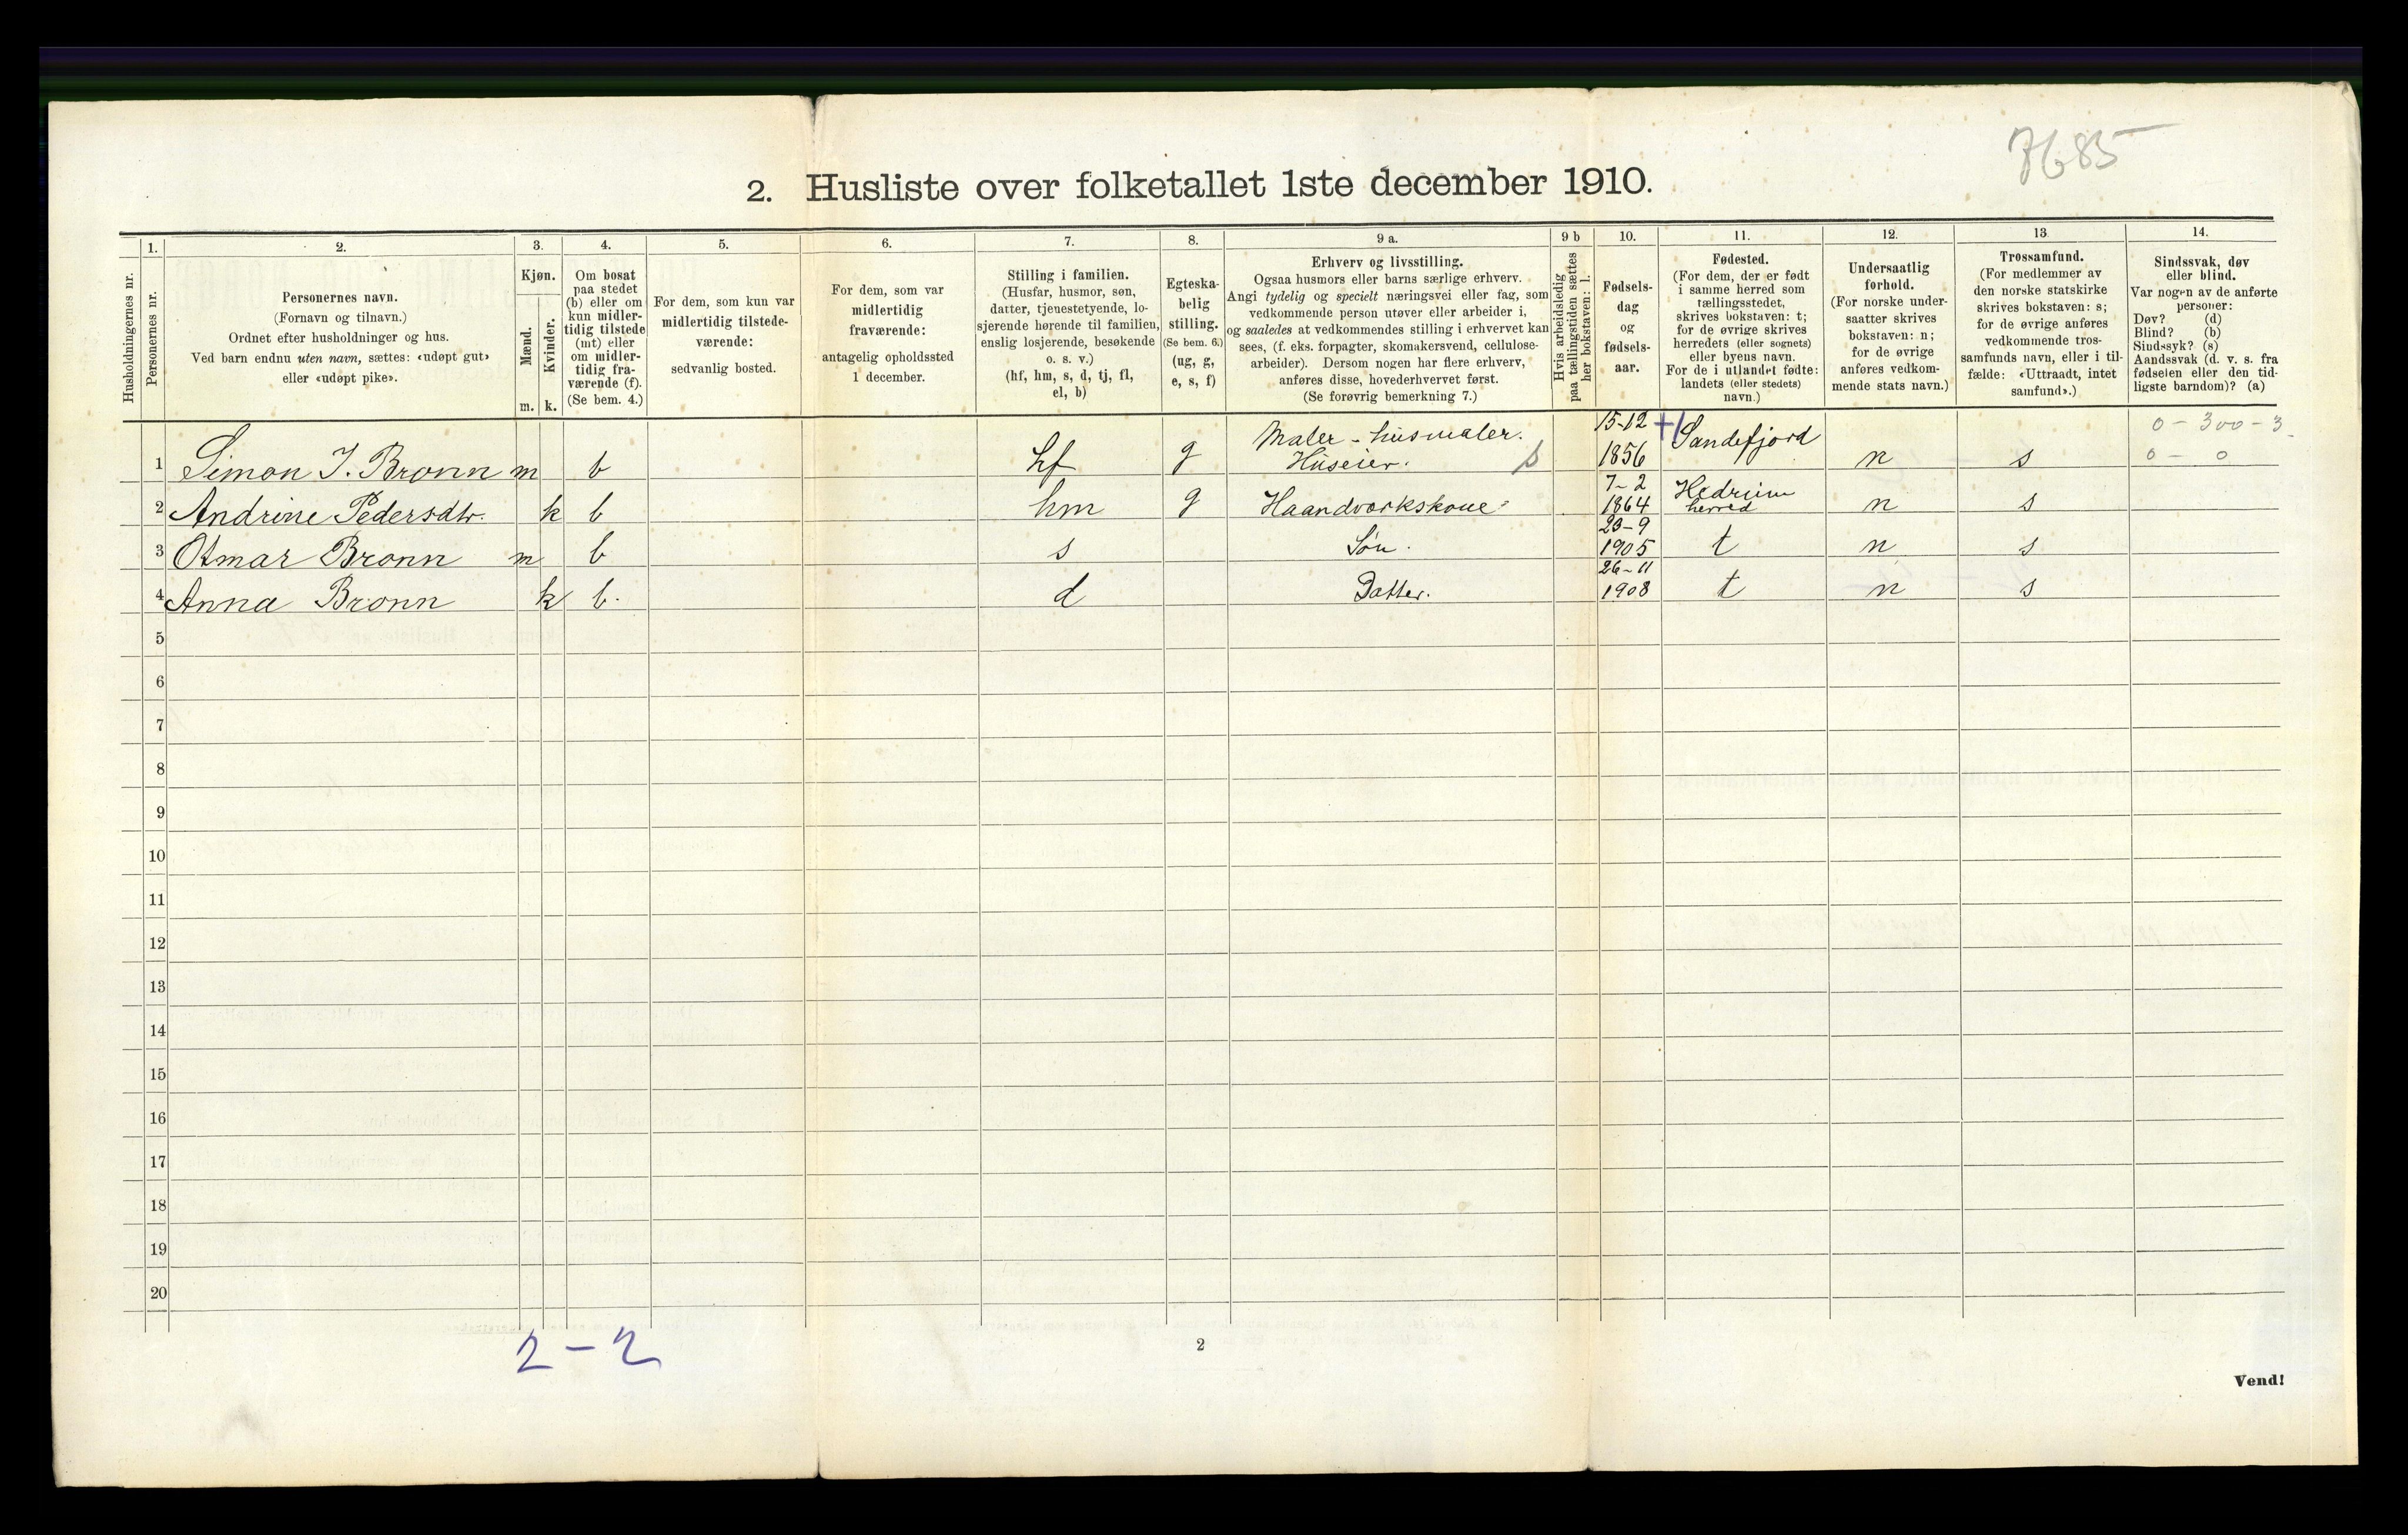 7685
2. Husliste over folketallet 1ste december 1910.
Husholdningernes nr.
1.
Personernes nr.
2.
Personernes navn.
(Fornavn og tilnavn.)
Ordnet efter husholdninger og hus.
Ved barn endnu uten navn, sættes: «udøpt gut»
eller «udøpt pike».
3.
Kjøn.
Mænd.
Kvinder.
m. k.
4.
Om bosat
paa stedet
(b) eller om
kun midler-
tidig tilstede
(mt) eller
om midler-
tidig fra-
værende (f).
(Se bem. 4.)
5.
For dem, som kun var
midlertidig tilstede-
værende:
sedvanlig bosted.
6.
For dem, som var
midlertidig
fraværende:
antagelig opholdssted
1 december.
7.
Stilling i familien.
(Husfar, husmor, søn,
datter, tjenestetyende, lo-
sjerende hørende til familien,
enslig losjerende, besøkende
o. s. v.)
(hf, hm, s, d, tj, fl,
el, b)
8.
Egteska-
belig
stilling.
(Se bem. 6.)
(ug, g,
e, s, f)
9 a.
Erhverv og livsstilling.
Ogsaa husmors eller barns særlige erhverv.
Angi tydelig og specielt næringsvei eller fag, som
vedkommende person utøver eller arbeider i,
og saaledes at vedkommendes stilling i erhvervet kan
sees, (f. eks. forpagter, skomakersvend, cellulose-
arbeider). Dersom nogen har flere erhverv,
anføres disse, hovederhvervet først.
(Se forøvrig bemerkning 7.)
9 b
Hvis arbeidsledig
paa tællingstiden sættes
her bokstaven: l.
10.
Fødsels-
dag
og
fødsels-
aar.
11.
Fødested.
(For dem, der er født
i samme herred som
tællingsstedet,
skrives bokstaven: t;
for de øvrige skrives
herredets (eller sognets)
eller byens navn.
For de i utlandet fødte:
landets (eller stedets)
navn.)
12.
Undersaatlig
forhold.
(For norske under-
saatter skrives
bokstaven: n;
for de øvrige
anføres vedkom-
mende stats navn.)
13.
Trossamfund.
(For medlemmer av
den norske statskirke
skrives bokstaven: s;
for de øvrige anføres
vedkommende tros-
samfunds navn, eller i til-
fælde: «Uttraadt, intet
samfund».)
14.
Sindssvak, døv
eller blind.
Var nogen av de anførte
personer:
Døv? (d)
Blind? (b)
Sindssyk? (s)
Aandssvak (d. v. s. fra
fødselen eller den tid-
ligste barndom)? (a)
1 Simon J. Bronn m b hf g Maler - husmaler. Huseier. s 15-12 1856 Sandefjord n s 0 - 300 - 3 0 - 0
2 Andrine Pedersdtr. k b hm g Haandværkskone 7-2 1864 Hedrum herred n s
3 Otmar Bronn m b s Søn. 23-9 1905 t n s
4 Anna Bronn k b. d Datter. 26-11 1908 t n s
5
6
7
8
9
10
11
12
13
14
15
16
17
18
19
20
2 - 2
2
Vend!